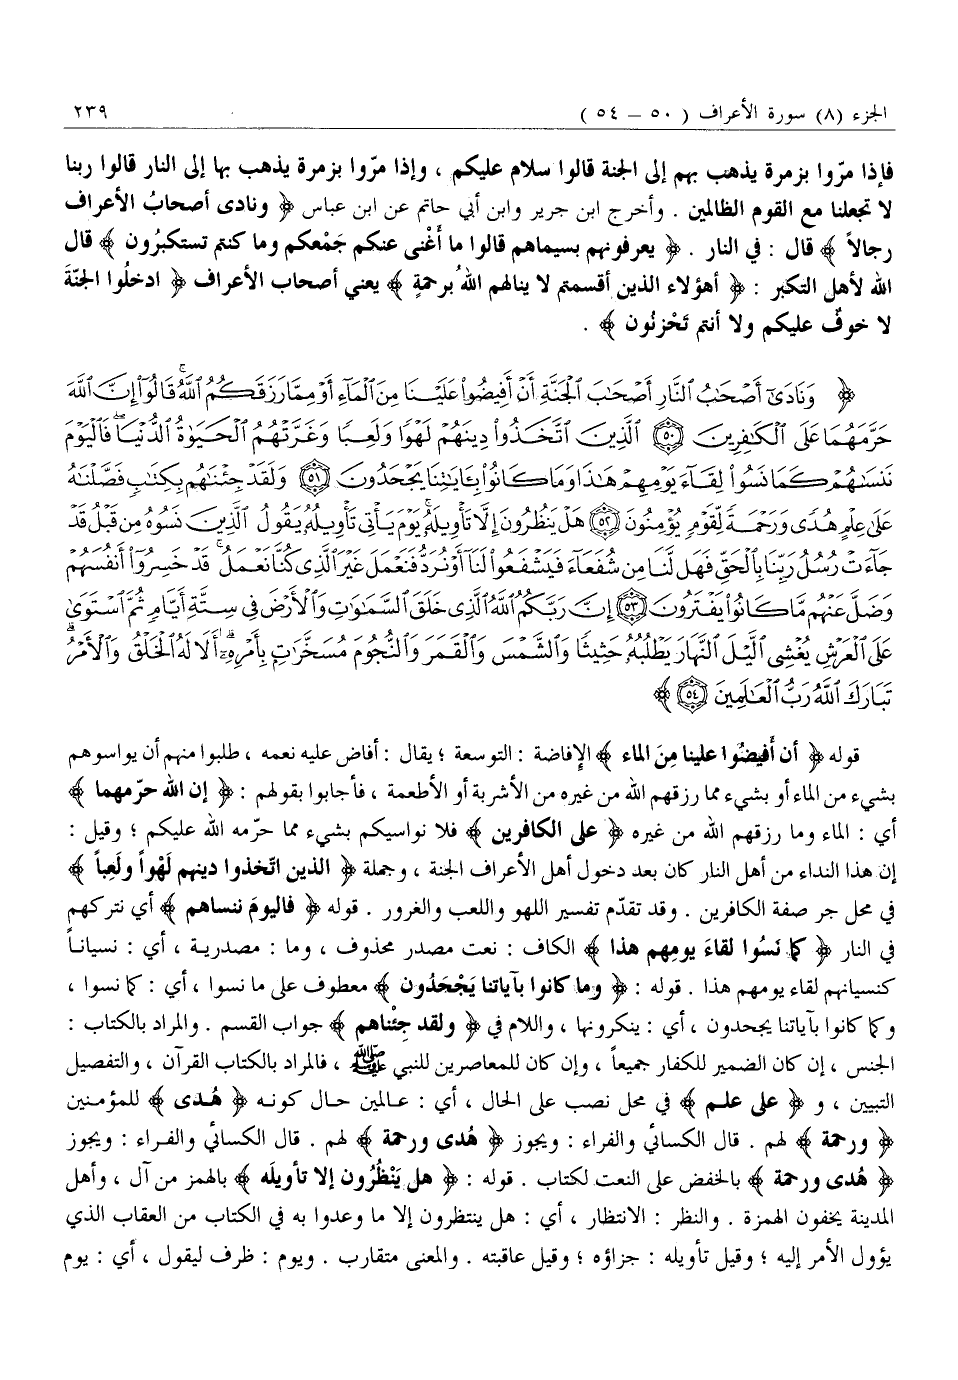 الجزء (٨) سورة الأعراف ( ٥٠ – ٥٤ ) ٢٣٩
فإذا مرّوا بزمرة يذهب بهم إلى الجنة قالوا سلام عليكم ، وإذا مرّوا بزمرة يذهب بها إلى النار قالوا ربنا
لا تجعلنا مع القوم الظالمين . وأخرج ابن جرير وابن أبي حاتم عن ابن عباس ﴿ ونادى أصحابُ الأعراف
رجالاً ﴾ قال : في النار . ﴿ يعرفونهم بسيماهم قالوا ما أَغْنى عنكم جَمْعكم وما كنتم تستكبرُون ﴾ قال
الله لأهل التكبر : ﴿ أهؤلاء الذين أقسمتم لا ينالهم اللهُ برحمةٍ ﴾ يعني أصحاب الأعراف ﴿ ادخلُوا الجنّةَ
لا خوفٌ عليكم ولا أنتم تَحْزنُون ﴾ .
﴿ وَنَادَىٰٓ أَصْحَٰبُ ٱلنَّارِ أَصْحَٰبَ ٱلْجَنَّةِ أَنْ أَفِيضُوا۟ عَلَيْنَا مِنَ ٱلْمَآءِ أَوْ مِمَّا رَزَقَكُمُ ٱللَّهُ ۚ قَالُوٓا۟ إِنَّ ٱللَّهَ
حَرَّمَهُمَا عَلَى ٱلْكَٰفِرِينَ ٥٠ ٱلَّذِينَ ٱتَّخَذُوا۟ دِينَهُمْ لَهْوًا وَلَعِبًا وَغَرَّتْهُمُ ٱلْحَيَوٰةُ ٱلدُّنْيَا ۚ فَٱلْيَوْمَ
نَنسَىٰهُمْ كَمَا نَسُوا۟ لِقَآءَ يَوْمِهِمْ هَٰذَا وَمَا كَانُوا۟ بِـَٔايَٰتِنَا يَجْحَدُونَ ٥١ وَلَقَدْ جِئْنَٰهُم بِكِتَٰبٍ فَصَّلْنَٰهُ
عَلَىٰ عِلْمٍ هُدًى وَرَحْمَةً لِّقَوْمٍ يُؤْمِنُونَ ٥٢ هَلْ يَنظُرُونَ إِلَّا تَأْوِيلَهُۥ ۚ يَوْمَ يَأْتِى تَأْوِيلُهُۥ يَقُولُ ٱلَّذِينَ نَسُوهُ مِن قَبْلُ قَدْ
جَآءَتْ رُسُلُ رَبِّنَا بِٱلْحَقِّ فَهَل لَّنَا مِن شُفَعَآءَ فَيَشْفَعُوا۟ لَنَآ أَوْ نُرَدُّ فَنَعْمَلَ غَيْرَ ٱلَّذِى كُنَّا نَعْمَلُ ۚ قَدْ خَسِرُوٓا۟ أَنفُسَهُمْ
وَضَلَّ عَنْهُم مَّا كَانُوا۟ يَفْتَرُونَ ٥٣ إِنَّ رَبَّكُمُ ٱللَّهُ ٱلَّذِى خَلَقَ ٱلسَّمَٰوَٰتِ وَٱلْأَرْضَ فِى سِتَّةِ أَيَّامٍ ثُمَّ ٱسْتَوَىٰ
عَلَى ٱلْعَرْشِ يُغْشِى ٱلَّيْلَ ٱلنَّهَارَ يَطْلُبُهُۥ حَثِيثًا وَٱلشَّمْسَ وَٱلْقَمَرَ وَٱلنُّجُومَ مُسَخَّرَٰتٍۭ بِأَمْرِهِۦٓ ۗ أَلَا لَهُ ٱلْخَلْقُ وَٱلْأَمْرُ ۗ
تَبَارَكَ ٱللَّهُ رَبُّ ٱلْعَٰلَمِينَ ٥٤ ﴾
قوله ﴿ أن أفيضُوا علينا مِنَ الماء ﴾ الإفاضة : التوسعة ؛ يقال : أفاض عليه نعمه ، طلبوا منهم أن يواسوهم
بشيء من الماء أو بشيء مما رزقهم الله من غيره من الأشربة أو الأطعمة ، فأجابوا بقولهم : ﴿ إن الله حرّمهما ﴾
أي : الماء وما رزقهم الله من غيره ﴿ على الكافرين ﴾ فلا نواسيكم بشيء مما حرّمه الله عليكم ؛ وقيل :
إن هذا النداء من أهل النار كان بعد دخول أهل الأعراف الجنة ، وجملة ﴿ الذين اتّخذوا دينهم لَهْواً ولَعِباً ﴾
في محل جر صفة الكافرين . وقد تقدّم تفسير اللهو واللعب والغرور . قوله ﴿ فاليومَ ننساهم ﴾ أي نتركهم
في النار ﴿ كما نَسُوا لقاءَ يومِهم هذا ﴾ الكاف : نعت مصدر محذوف ، وما : مصدرية ، أي : نسياناً
كنسيانهم لقاء يومهم هذا . قوله : ﴿ وما كانوا بآياتنا يَجْحَدُون ﴾ معطوف على ما نسوا ، أي : كما نسوا ،
وكما كانوا بآياتنا يجحدون ، أي : ينكرونها ، واللام في ﴿ ولقد جِئْناهم ﴾ جواب القسم . والمراد بالكتاب :
الجنس ، إن كان الضمير للكفار جميعاً ، وإن كان للمعاصرين للنبي ﷺ ، فالمراد بالكتاب القرآن ، والتفصيل
التبيين ، و ﴿ على علم ﴾ في محل نصب على الحال ، أي : عالمين حال كونه ﴿ هُدى ﴾ للمؤمنين
﴿ ورحمة ﴾ لهم . قال الكسائي والفراء : ويجوز ﴿ هُدى ورحمة ﴾ لهم . قال الكسائي والفراء : ويجوز
﴿ هُدى ورحمة ﴾ بالخفض على النعت لكتاب . قوله : ﴿ هل يَنْظُرُون إلا تأويلَه ﴾ بالهمز من آل ، وأهل
المدينة يخفون الهمزة . والنظر : الانتظار ، أي : هل ينتظرون إلا ما وعدوا به في الكتاب من العقاب الذي
يؤول الأمر إليه ؛ وقيل تأويله : جزاؤه ؛ وقيل عاقبته . والمعنى متقارب . ويوم : ظرف ليقول ، أي : يوم